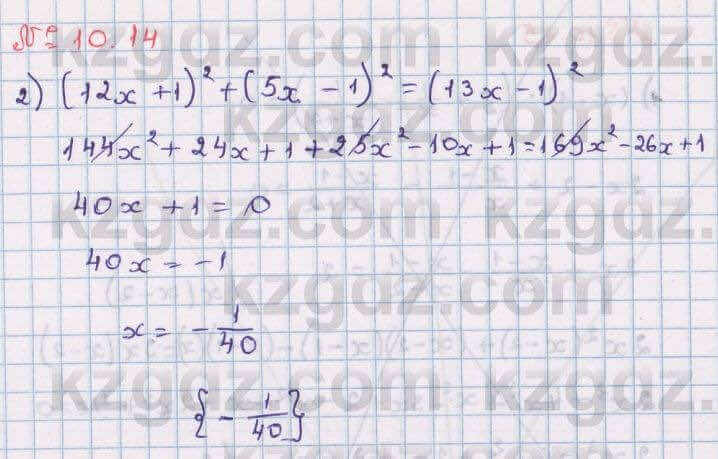 № 10.14
2) (12x + 1)² + (5x - 1)² = (13x - 1)²
144x² + 24x + 1 + 25x² - 10x + 1 = 169x² - 26x + 1
40x + 1 = 0
40x = -1
x = - 1/40
{- 1/40}
kzgdz.com kzgdz.com
kzgdz.com kzgdz.com
kzgdz.com
kzgdz.com
kzgdz.com